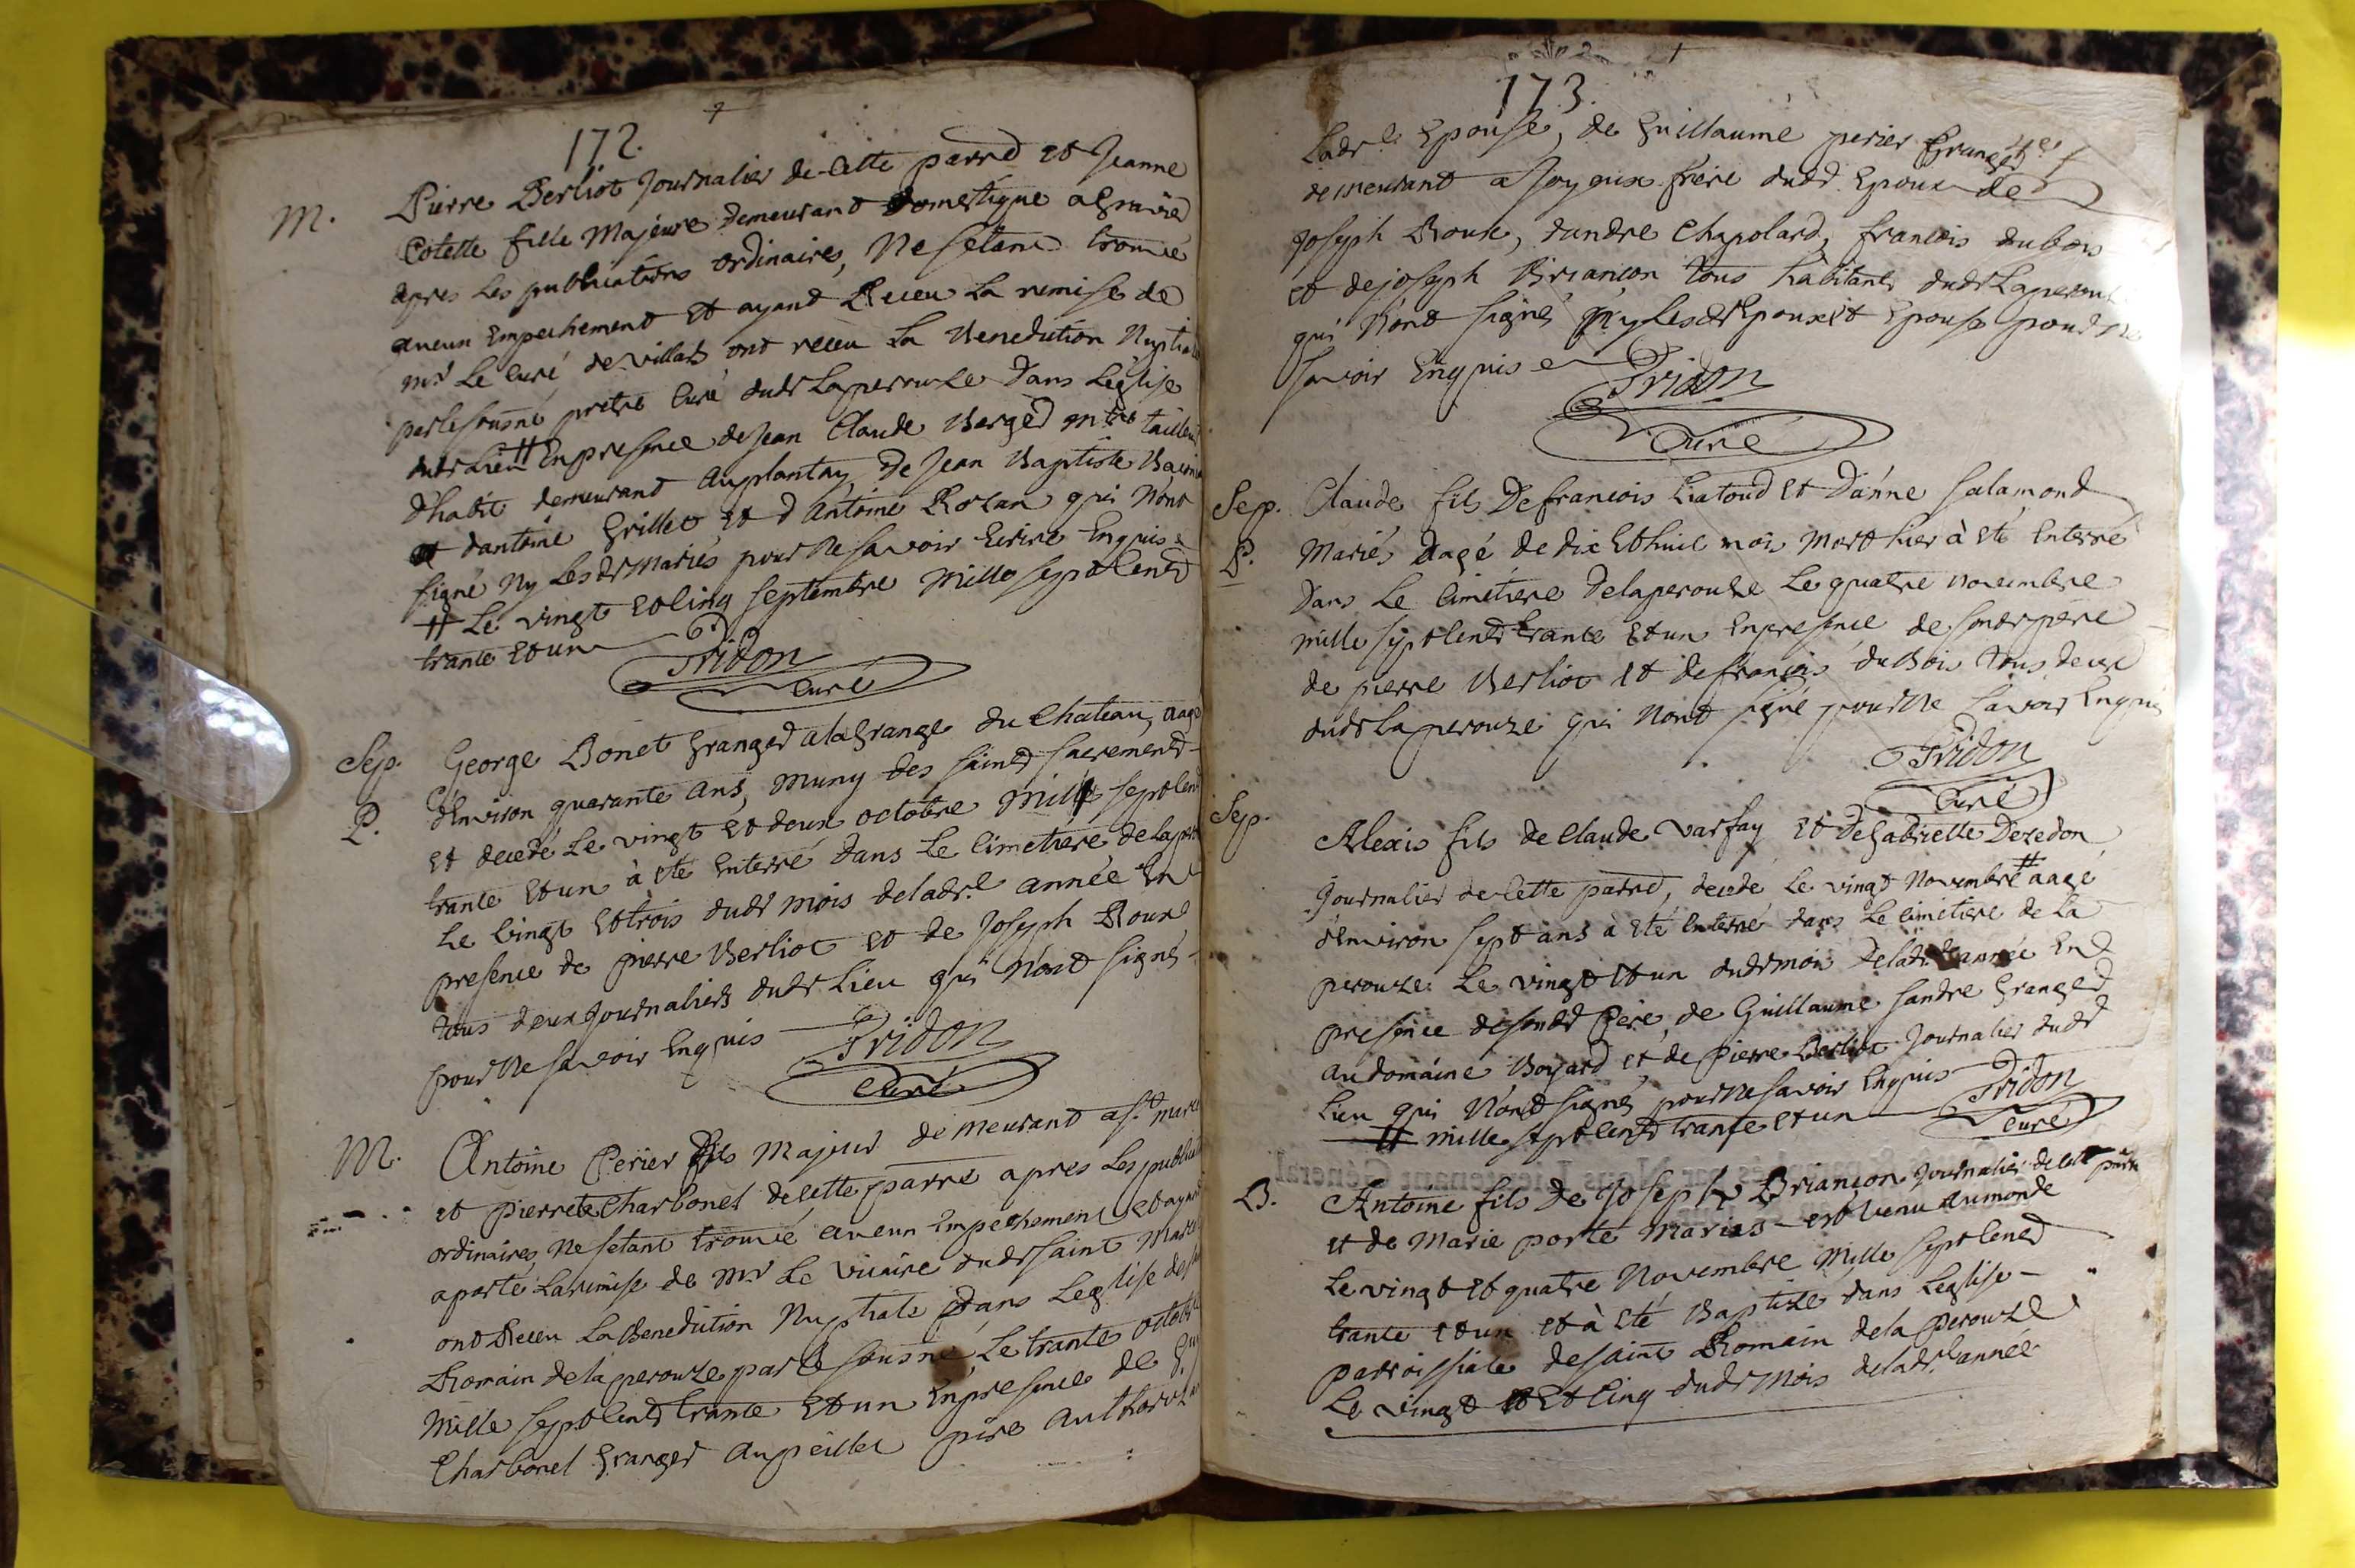 172.
M. Pierre Berliot Journalier de Cette parrd et Jeanne
Cotette fille Majeure demeurant domestique a
apres Les publications ordinaires, Ne setant trouvé
aucun Empechement Et ayant Receu La remise de
mr Le Curé de villars ont receu La Benediction
par le sousné pretre Curé dudt Laperouze Dans Leglise
dudt Lieu # En presence de Jean Claude Berged mtre
dhabit demeurant Auplantay, De Jean Baptiste
et dantoine Grillet et d Antoine Rozan qui N'ont
signé Ny Lesdt Mariés pour Ne savoir Ecrire Enquis
# Le vingt et Cinq septembre Mille sept Centd
trante et un
Tridon
Curé
Sep. George Bonet Granged a la Grange du Chateau, aagé
P. d'Environ quarante ans, muny des saintd sacrementd
Et decedé Le vingt et deux octobre Mille sept
trante et un à été Enterré dans Le Cimetiere
Le vingt et trois dudt mois de ladt.e année En
presence de pierre Berliot et de Joseph Roux
tous deux Journaliers dudt Lieu qui N'ont signé
pour Ne savoir Enquis
Tridon
Curé
M. Antoine Perier fils Majeur demeurant a st.
et Pierrete Charbonet de Cette parre apres Les
ordinaires, Ne setant trouvé aucun Empechement
aporté La remise de Mr Le vicaire dudt saint
ont Receu La Benediction Nuptiale Dans Leglise
Romain de la perouze par le sousné Le trante
Mille sept Centd trante Et un En presence de
Charbonet Granger Aupeillet pere
173.
Ladt.e Epouse, de Guillaume perier Granger
demeurant a Joyeux frere dudt Epoux de
Joseph Roux, dandre Chapolard, francois dubois
et de joseph Briancon tous habitants dudt
qui N'ont signés Ny Lesdt Epoux et Epouse
savoir Enquis
Tridon
Curé
Sep. Claude fils De francois Liatoud et D'anne salamond
P. Mariés Aagé de dix Et huit mois Mort hier à eté Enterré
Dans Le Cimetiere De laperouze Le quatre novembre
mille sept Centd trante Et un En presence de sondt pere
de pierre Berliot et de francois duBois tous deux
dudt La perouze qui N'ont signé pour Ne savoir Enquis
Tridon
Curé
Sep. Alexis fils de Claude Varfay Et De Gabrielle Dezedon
Journalier de Cette parrd, decedé Le vingt Novembre # aagé
d'Environ sept ans à été Enterré dans Le Cimetiere de La
perouze Le vingt et un dudt mois De ladt année En
presence de sondt Pere, de Guillaume sandre Granged
au domaine Boyard et de Pierre Berliot Journalier dudt
Lieu qui N'ont signés pour Ne savoir Enquis
Tridon
# mille sept Centd trante et un
Curé
B. Antoine fils de Joseph Briancon Journalier de Cette parre
et de Marie porte Mariés est venu au monde
Le vingt et quatre Novembre Mille sept Centd
trante et un et à été Baptizé dans Leglise
parroissiale de saint Romain de la perouze
Le vingt Et Cinq dudt Mois de ladt année